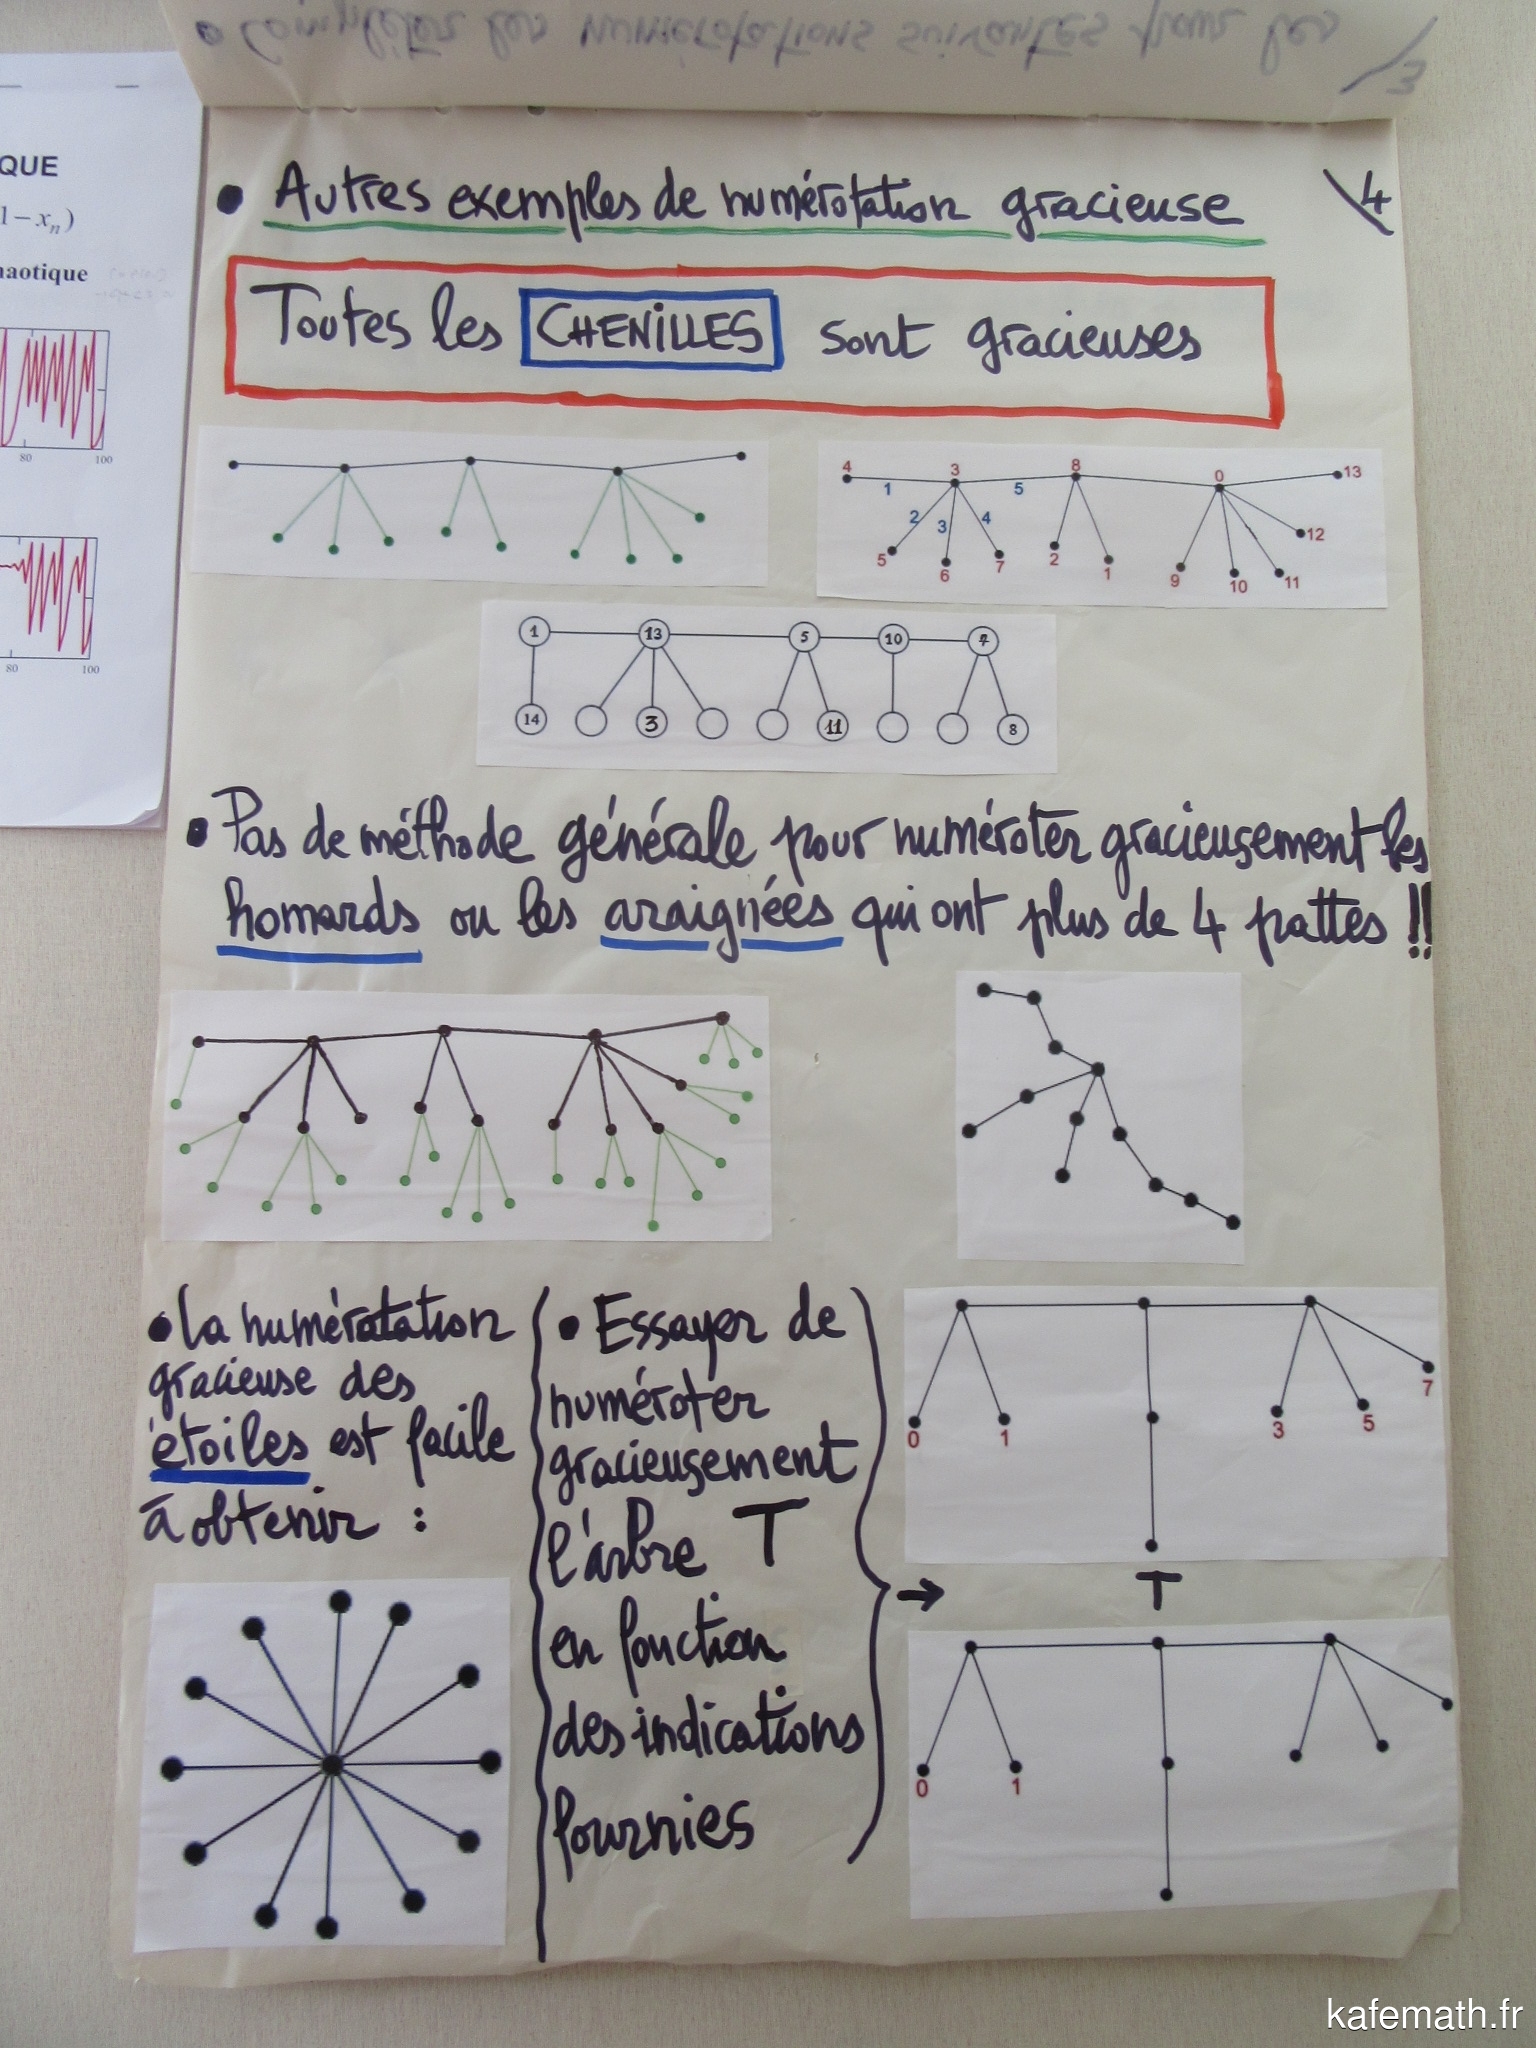 • Complèter les numérotations suivantes pour les
3
QUE
1 – xn)
haotique
80
100
80
100
• Autres exemples de numérotation gracieuse
4
Toutes les CHENILLES sont gracieuses
4 3 8 0 13
1 5
2 3 4 12
5 6 7 2 1 9 10 11
1 13 5 10 7
14 3 11 8
• Pas de méthode générale pour numéroter gracieusement les
homards ou les araignées qui ont plus de 4 pattes !!
• La numérotation
gracieuse des
étoiles est facile
à obtenir :
• Essayer de
numéroter
gracieusement
l'arbre T
en fonction
des indications
fournies
7
0 1 3 5
→ T
0 1
kafemath.fr